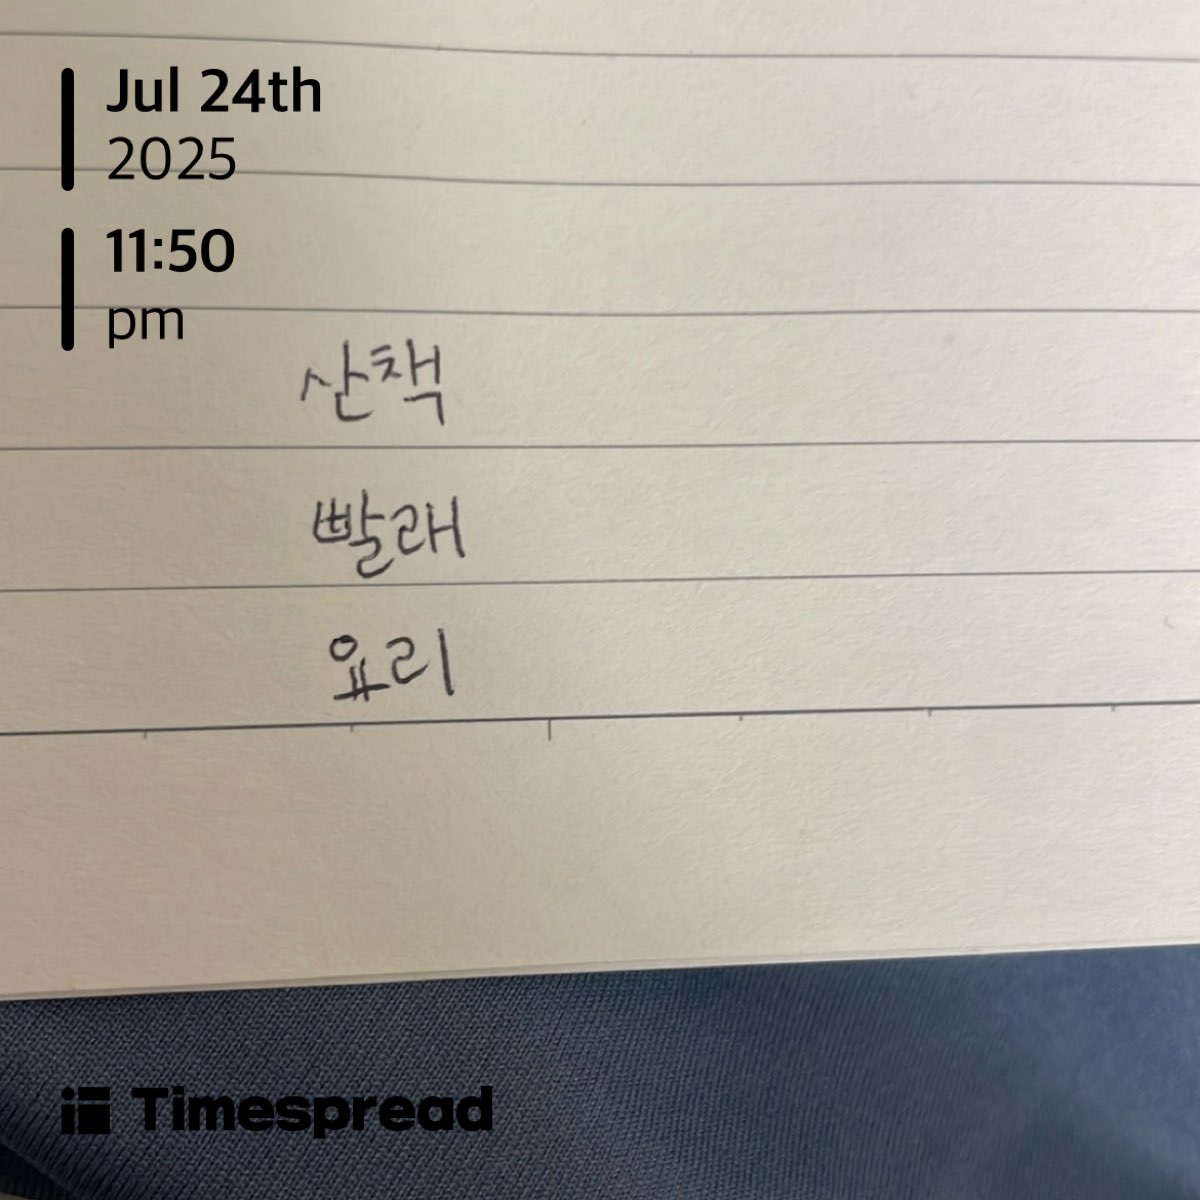 Jul 24th
2025
11:50
pm
산책
빨래
요리
Timespread